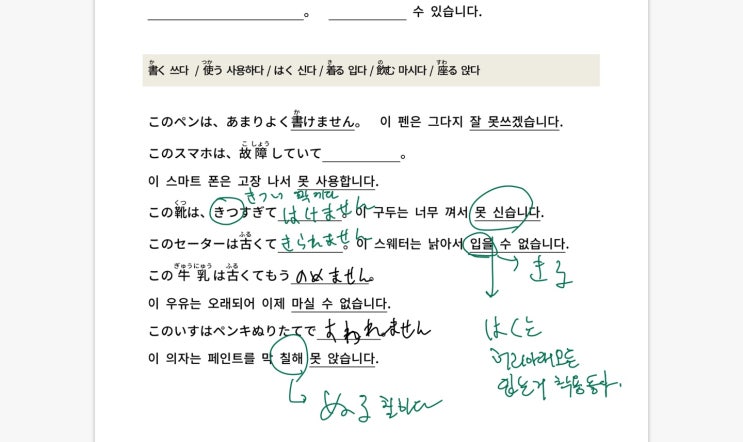 ____________________。 __________ 수 있습니다.
書く 쓰다 / 使う 사용하다 / はく 신다 / 着る 입다 / 飲む 마시다 / 座る 앉다
このペンは、あまりよく書けません。 이 펜은 그다지 잘 못쓰겠습니다.
このスマホは、故障していて__________。
이 스마트 폰은 고장 나서 못 사용합니다.
きつい
この靴は、きつすぎてはけません。이 구두는 너무 껴서 못 신습니다.
このセーターは古くてきられません。이 스웨터는 낡아서 입을 수 없습니다.
きる
この牛乳は古くてもうのめません。
이 우유는 오래되어 이제 마실 수 없습니다.
このいすはペンキぬりたてですわれません
이 의자는 페인트를 막 칠해 못 앉습니다.
ぬる 칠하다
はく는
허리아래 모든
입는거 착용동사.